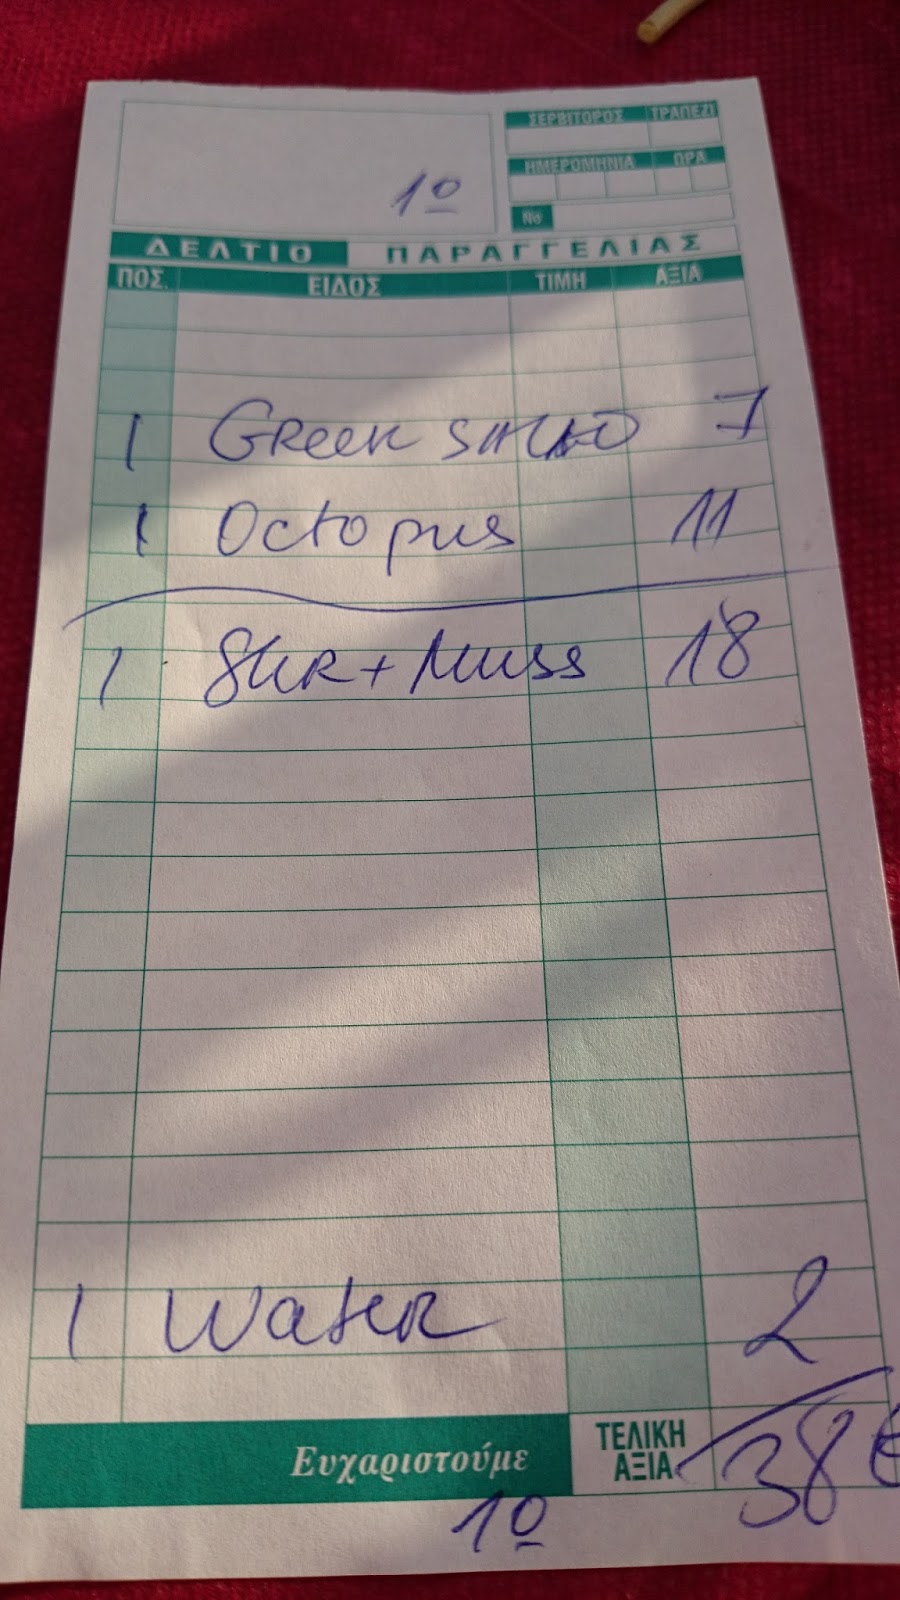 ΣΕΡΒΙΤΟΡΟΣ ΤΡΑΠΕΖΙ
ΗΜΕΡΟΜΗΝΙΑ ΩΡΑ
1º
Νο
ΔΕΛΤΙΟ ΠΑΡΑΓΓΕΛΙΑΣ
ΠΟΣ. ΕΙΔΟΣ ΤΙΜΗ ΑΞΙΑ
1 Greek SALAD 7
1 Octopus 11
1 + Muss 18
1 Water 2
Ευχαριστούμε ΤΕΛΙΚΗ ΑΞΙΑ 38€
1º